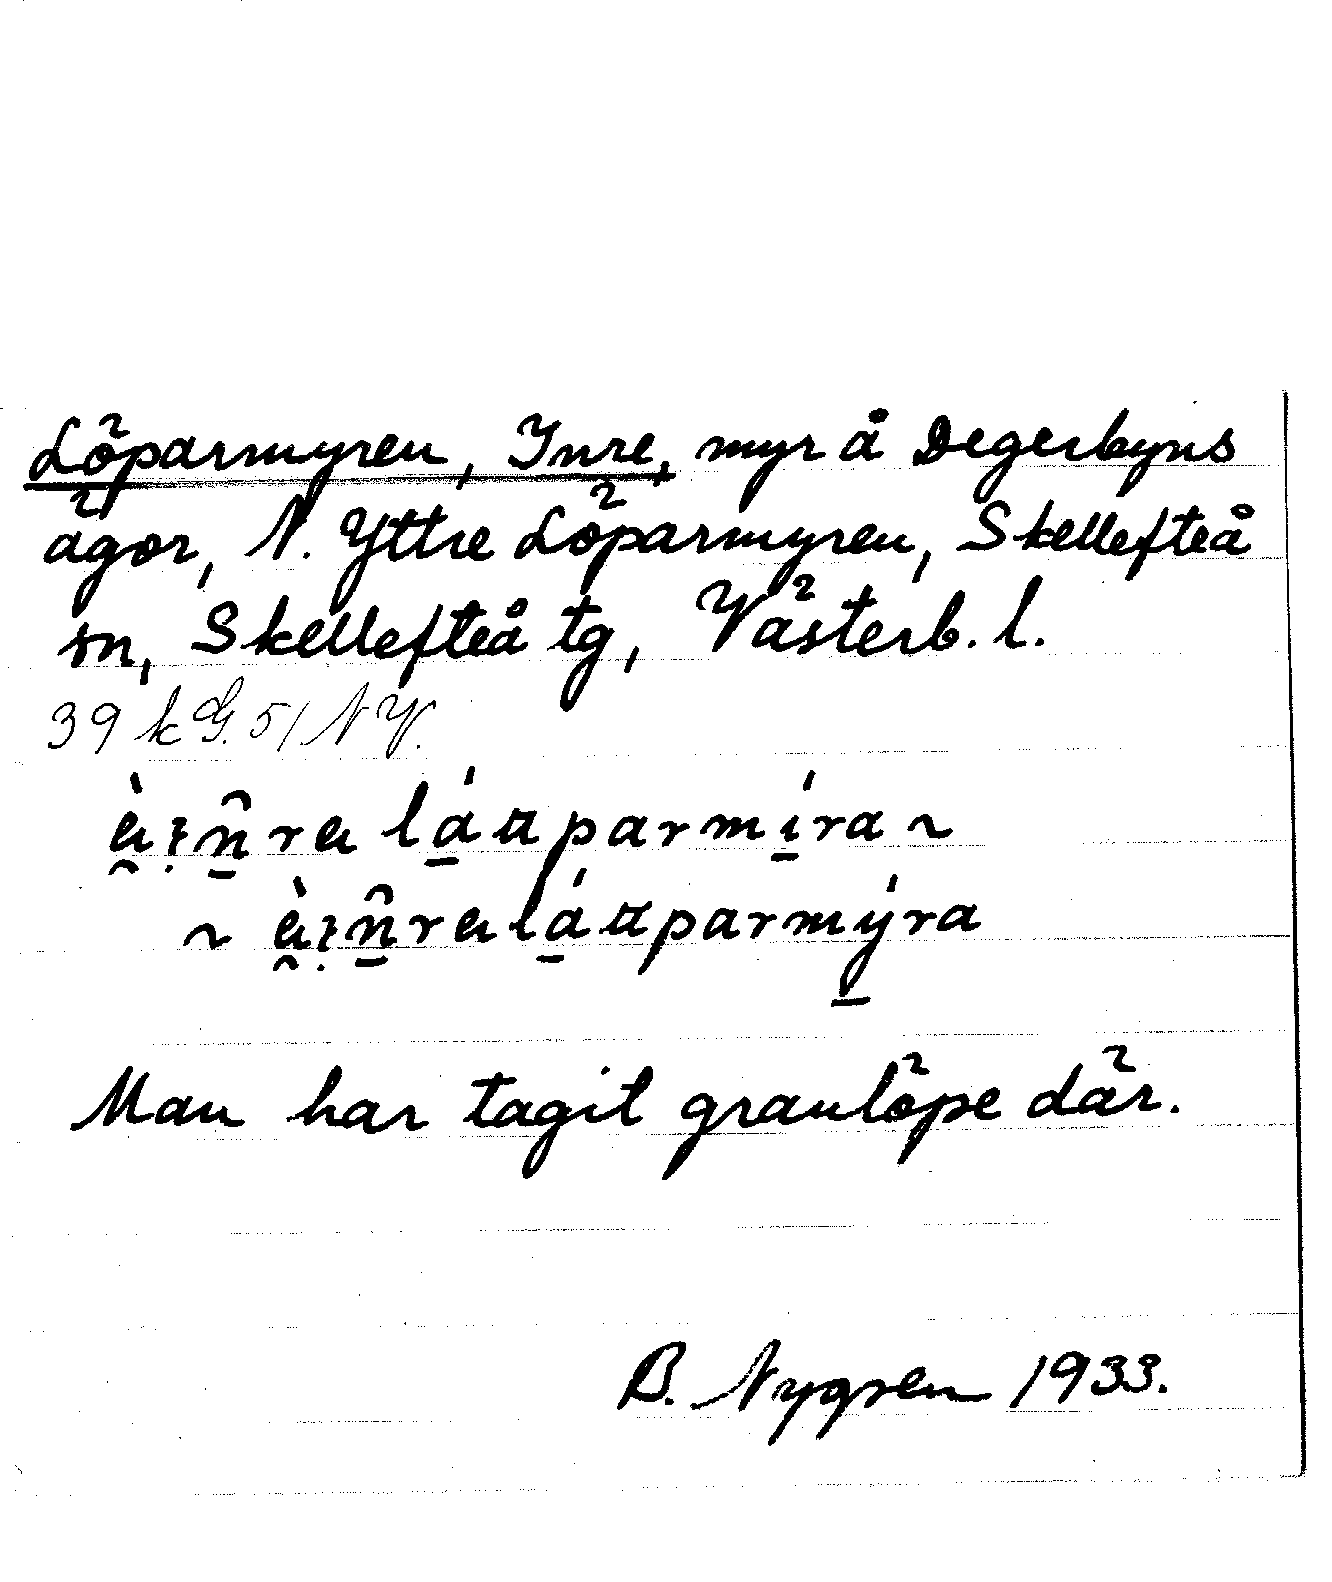 Löparmyren, Inre, myr å Degerbyns
ägor, N. Yttre Löparmyren, Skellefteå
sn, Skellefteå tg, Västerb. l.
39 k G. 5/ NV.
~
~
Man har tagit granlöpe där.
B. Nygren 1933.